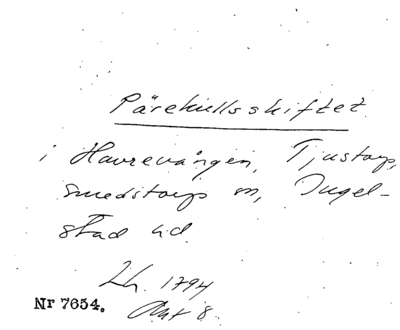 Pärekullsskiftet
i Havrevången, Tjustorp,
Smedstorps sn, Ingel-
stad hd.
Lh. 1794
Akt 8.
Nr 7654.